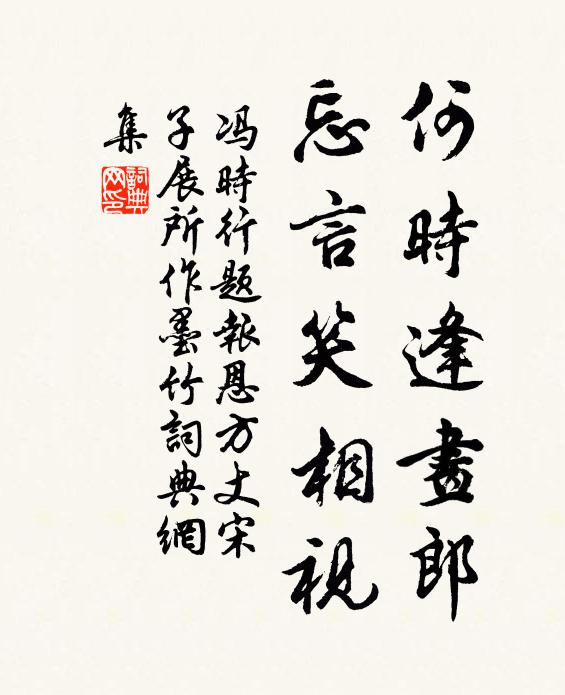 何時逢畫郎
忘言笑相視
冯時行題報恩方丈宋
子展所作墨竹詞典網
集
詞典
网印